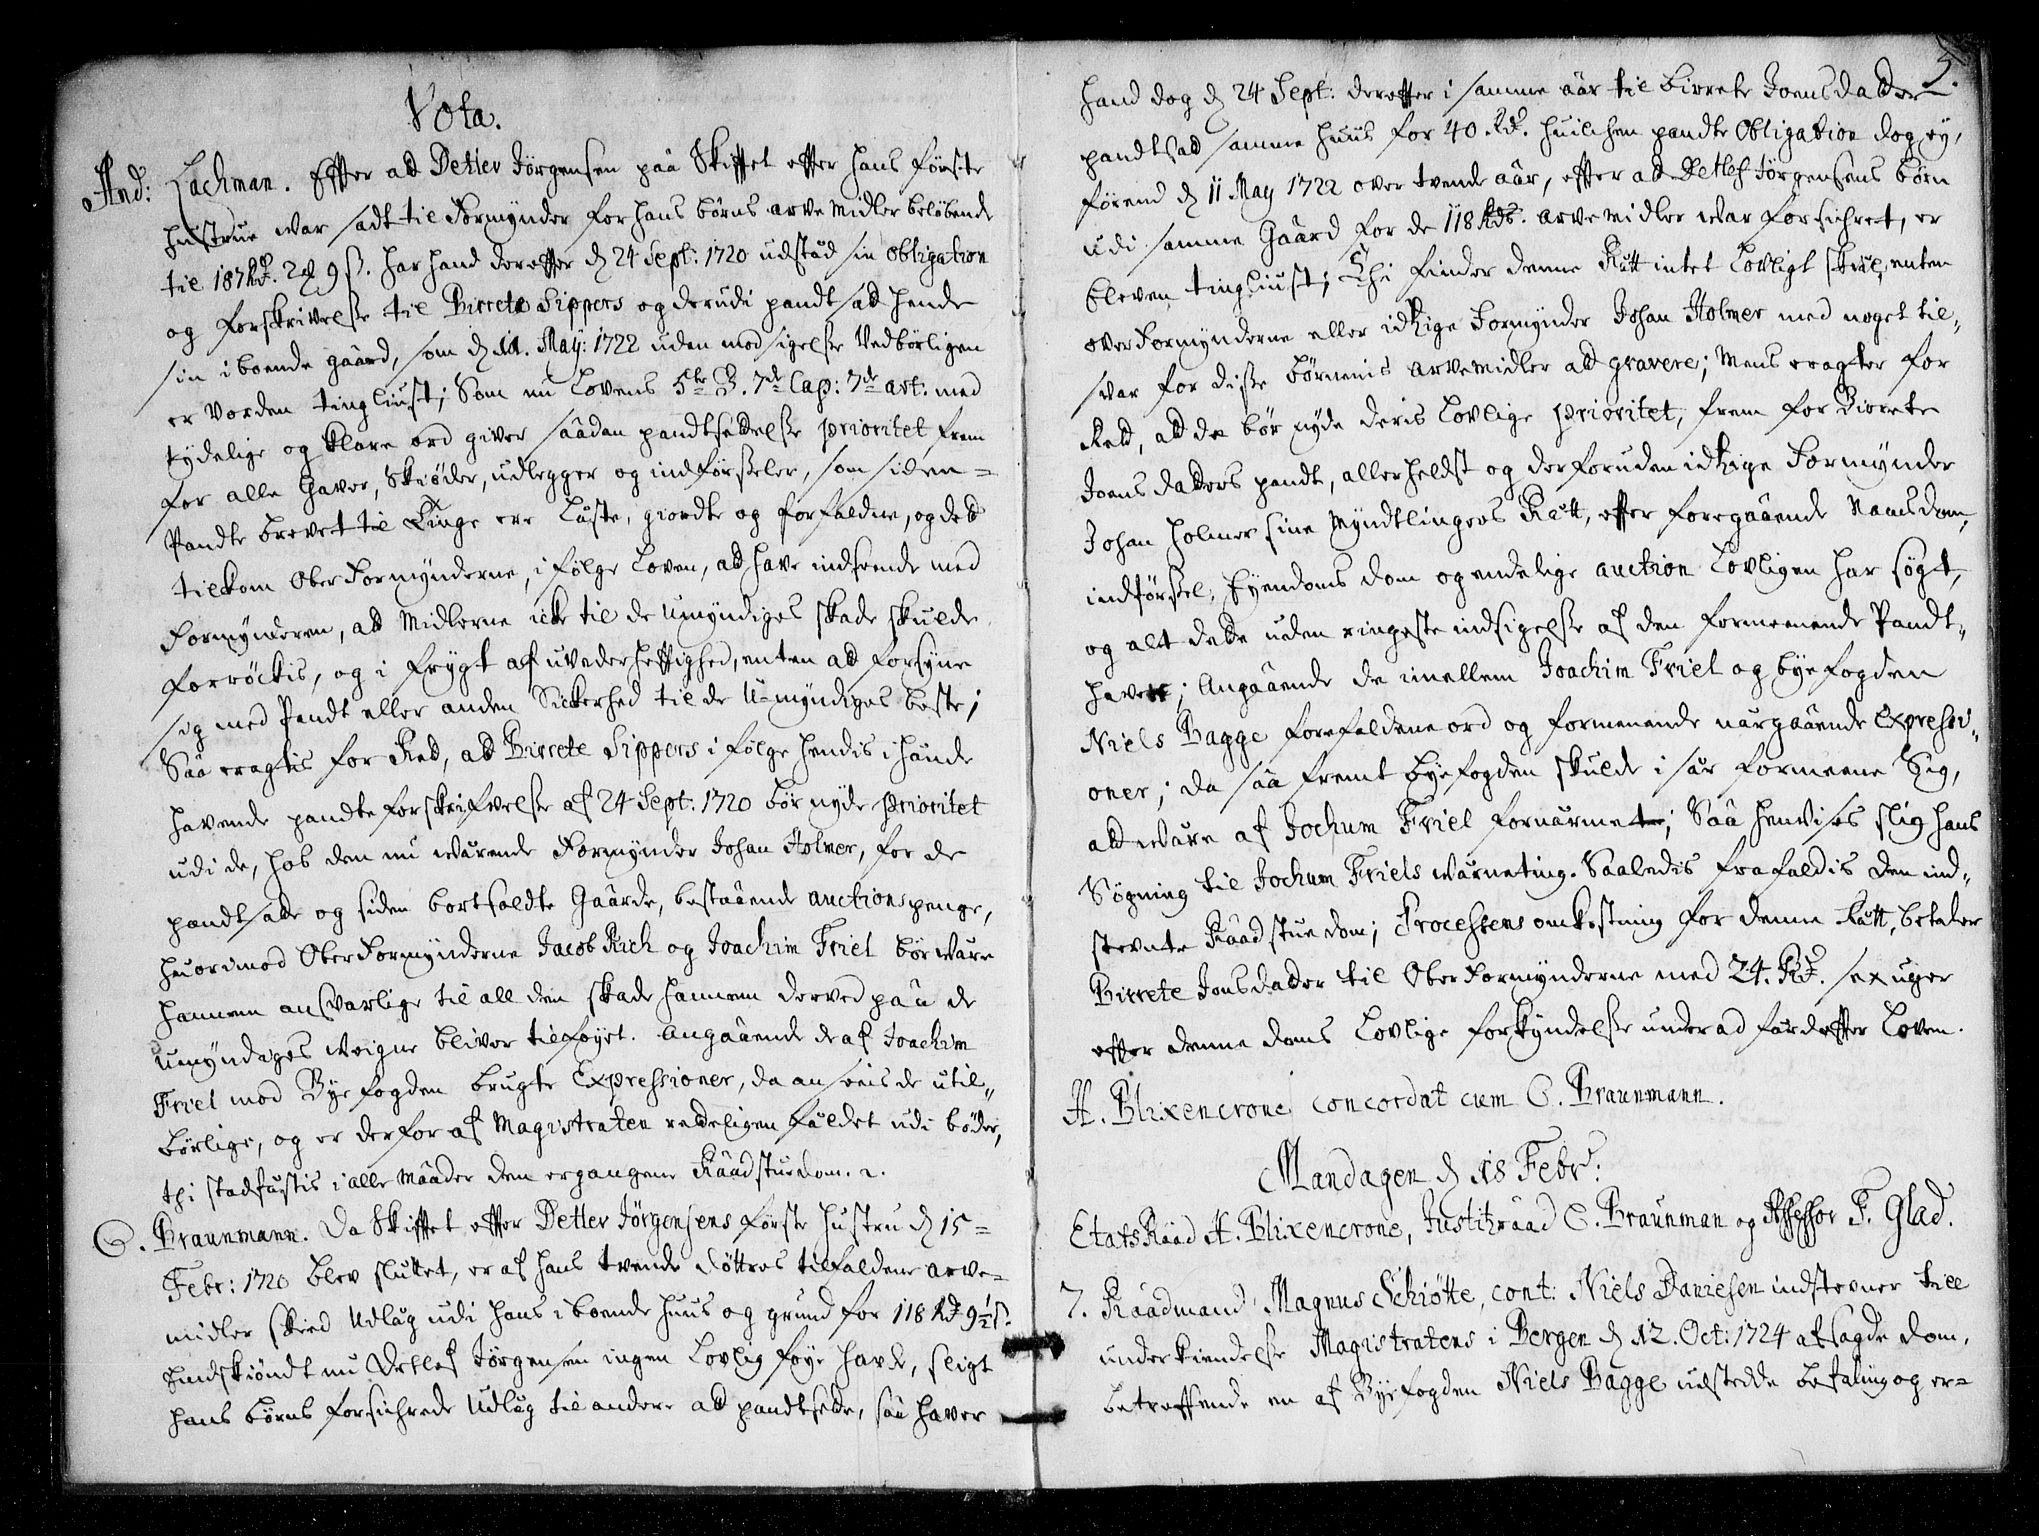 Vota.
And: Lachman. Efter ad Detlev Jörgensen paa Skifftet efter hans förste
hustrue war sadt til Formynder for hans börns arve midler belöbende
til 187 Rdr. 2 ₰ 9 ß. har hand derefter d. 24 Sept: 1720 udstæd sin obligation
og forskrivelse til Birrete Sippers og derudi pandtsad hende
sin iboende gaard, som d. 11. May: 1722 uden modsigelse Vedbörligen
er vorden tingliust; Som nu Lovens 5te B. 7de Cap: 7de art. med
tydelige og klare ord giver saadan pandtsettelse prioritet frem
for alle Gaver, Skiöder, udlegger og indförseler, som siden
Pandte brevet til Tinge ere læste, giordte og forfaldne, og det
tilkom Ober Formynderne, i fölge Loven, ad have indseende med
Formynderen, ad Midlerne icke til de Umyndiges skade skulde
forröckis, og i frygt af uvederheftighed, enten ad forsyne
sig med Pandt eller anden Sickerhed til de U-myndiges beste;
Saa eragtis for Ret, ad Birrete Sippers i fölge hendis i hænde
havende pandteforskrifvelse af 24 Sept: 1720 bör nyde prioritet
udi de, hos den nu wærende Formynder Johan Holmer, for de
pandtsatte og siden bortsoldte Gaarde, bestaaende auctionspenge,
hvorimod Ober Formynderne Jacob Rich og Joachim Friel bör være
hannem ansvarlige til all den skade hannem derved paa de
umyndiges Veigne bliver tilföyet. Angaaende de af Joachim
Friel mod Byefogden brugte Expressioner, da ansees de util-
börlige, og er derfor af Magistraten retteligen fældet udi böder,
thi stadfæstis i alle maader den ergangene Raadstuedom.
C. Braunmann. Da Skifftet efter Detlev Jörgensens förste hustru d. 15
Febr: 1720 blev sluttet, er af hans tvende döttres tilfaldene arve-
midler skeed Udlæg udi hans iboende huus og grund for 118 Rd 9½ ß.
Endskiöndt nu Detlef Jörgensen ingen Lovlig föye havde, sligt
hans börns forsichrede Udlæg til andere ad pandtsette, saa haver
5.
hand dog d. 24 Sept: derefter i samme aar til Birrete Joensdatter
pandtsad samme huus for 40 Rdr. huilchen pandte Obligation dog ey,
förend d. 11 May 1722 over tvende aar, efter ad Detlef Jörgensens börn
udi samme Gaard for de 118 Rdr. arve midler war forsichret, er
bleven tingliust; Thi finder denne Rætt intet Lovligt skiæl, enten
over Formynderne eller idtzige Formynder Johan Holmer med noget til-
svar for disse börnenis arvemidler ad gravere; Mens eragter for
Ret, ad de bör nyde deris Lovlige prioritet, frem for Birrete
Joensdatters pandt, allerheldst og derforuden idtzige Formynder
Johan Holmer sine Myndtlingers Rætt, efter foregaaende Namsdom,
indförsel, Eyendoms dom og endelige auction Lovligen har sögt,
og alt dette uden ringeste indsigelse af den formeenende Pandt-
havere; Angaaende de imellem Joachim Friel og byefogden
Niels Bagge forefaldene ord og formenende nærgaaende Expressi-
oner; da saa fremt byefogden skulde i sær formeene Sig,
ad wære af Jochum Friel fornærmet; Saa henvises slig hans
Sögning til Jochum Friels Værneting. Saaledis frafaldis den ind-
stevnte Raadstuedom; Processens omkostning for denne Rætt, betaler
Birrete Jonsdatter til Ober Formynderne med 24. Rdr. sex uger
efter denne doms Lovlige forkyndelse under ad færd efter Loven.
A. Blixencrone concordat cum C. Braunmann.
Mandagen d. 18 Febr:
EtatsRaad A. Blixencrone, Justitzraad C. Braunman og Assessor F. Glad.
7. Raadmand Magnus Schiötte, cont: Niels Danielsen indstevner till
underkiendelse Magistratens i Bergen d. 12. Oct: 1724 afsagde dom,
betreffende en af Byefogden Niels Bagge udstedde befaling og er-